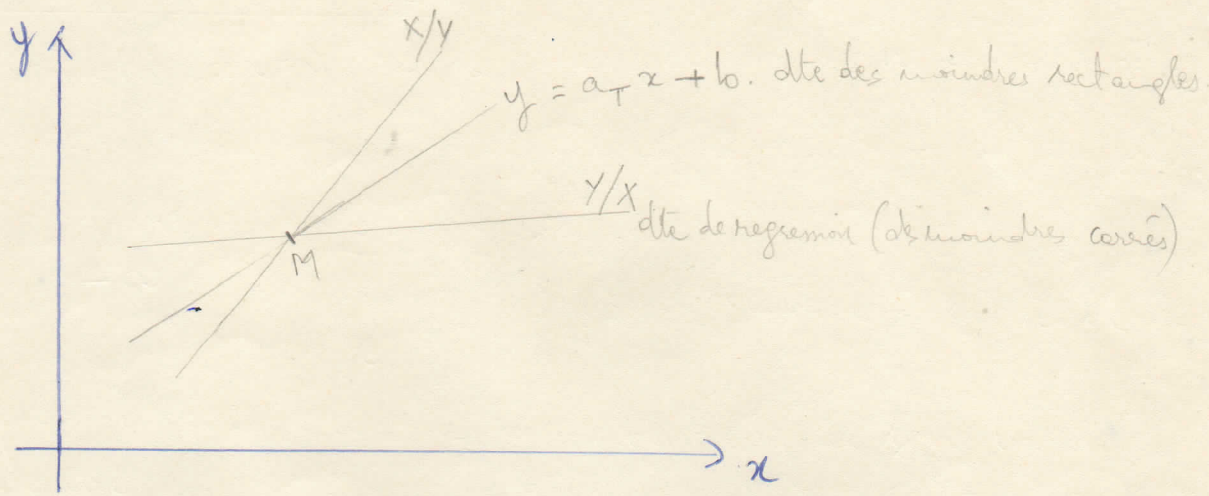 y
X/Y
y = a_T x + b. dte des moindres rectangles.
Y/X
dte de regression (ds moindres carrés)
M
x